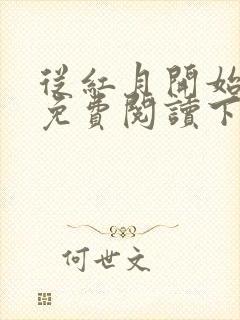 從紅月開始
免費閱讀下
何世文